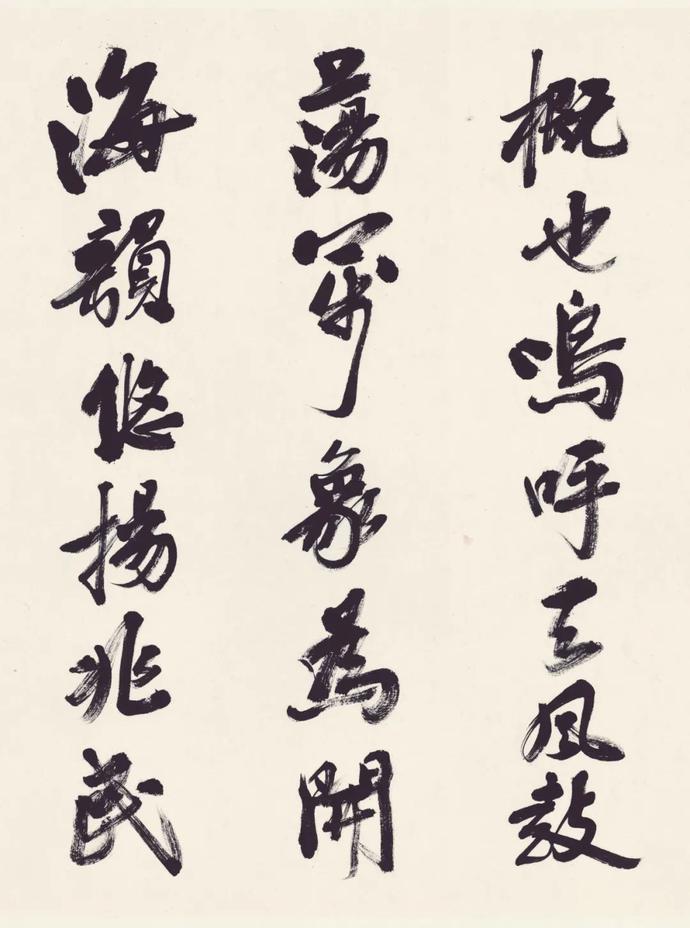 概也嗚呼天風鼓
蕩萬象為開
海韻悠揚兆民